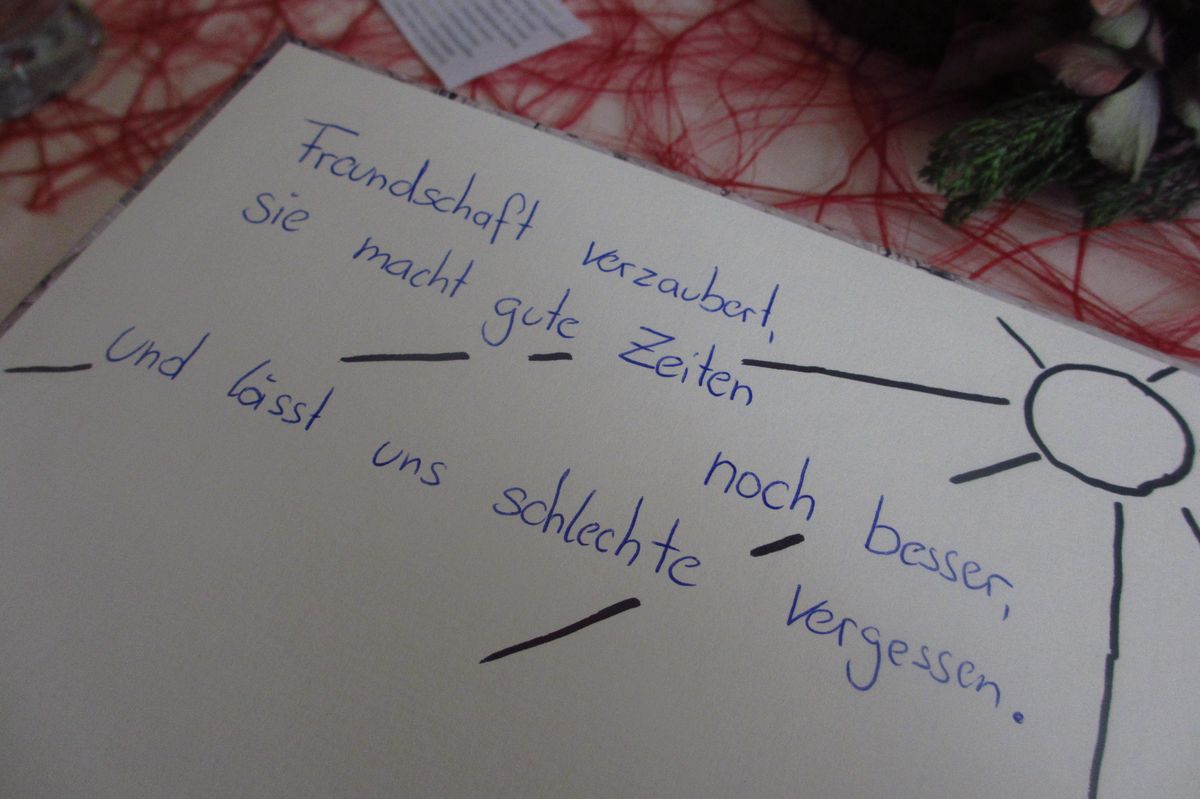 Freundschaft verzaubert,
sie macht gute Zeiten
noch besser,
und lässt uns schlechte
vergessen.